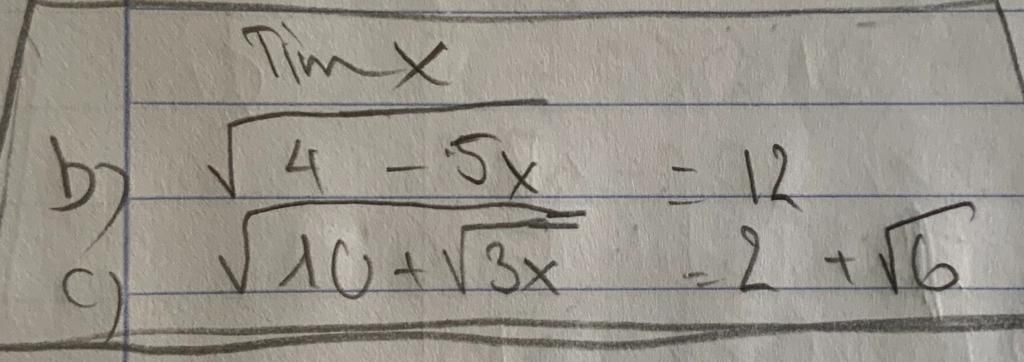 Tìm x
b) √(4 - 5x) = 12
c) √(10 + √(3x)) = 2 + √6